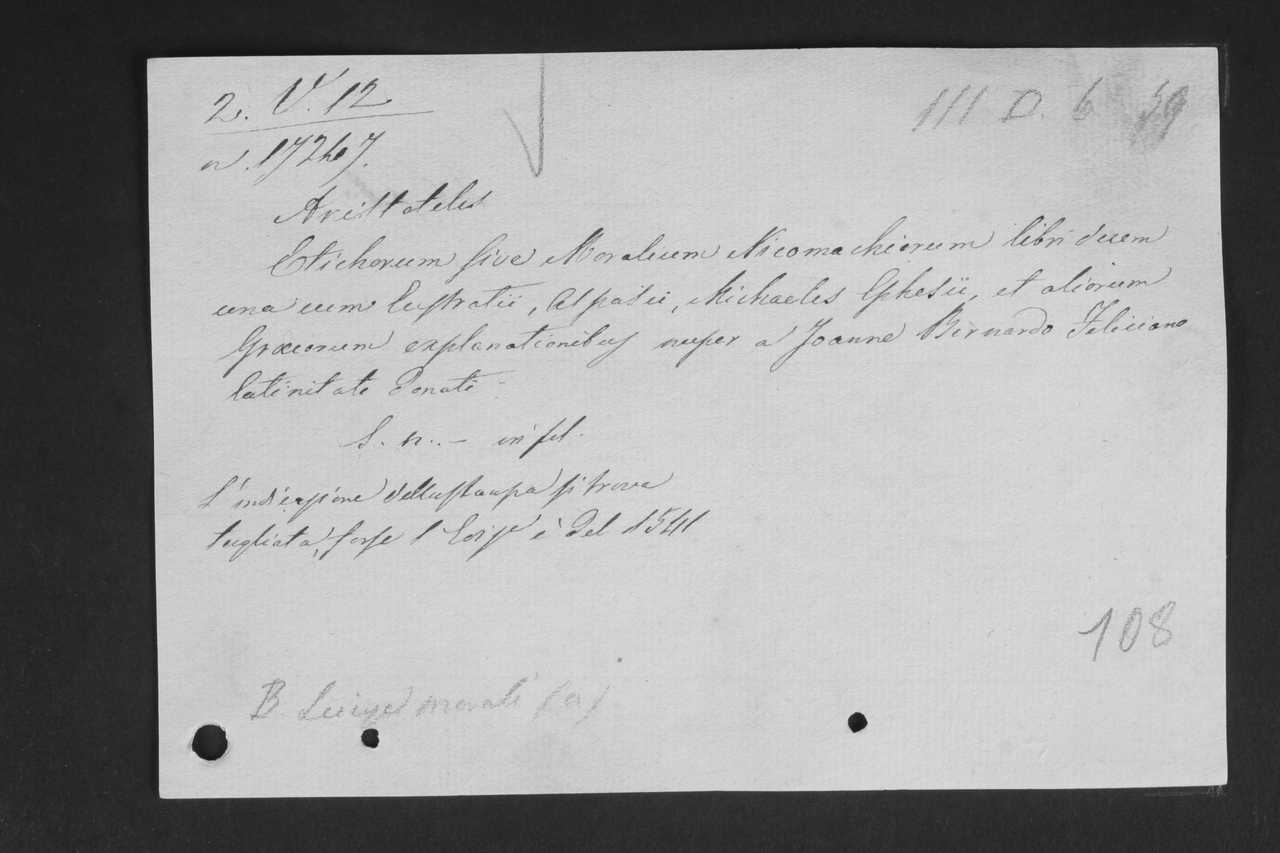 2. V. 12
III D. 6 59
n. 17267.
Aristoteles
Etichorum sive Moralium Nicomachiorum libri decem
una cum Eustratii, Aspasii, Michaelis Ephesii, et aliorum
Græcorum explanationibus nuper a Joanne Bernardo Feliciano
latinitate donati
S. n. - in fol.
L'indicazione della stampa si trova
tagliata, forse l'Ediz è del 1541
108
B. Scienze morali (a)